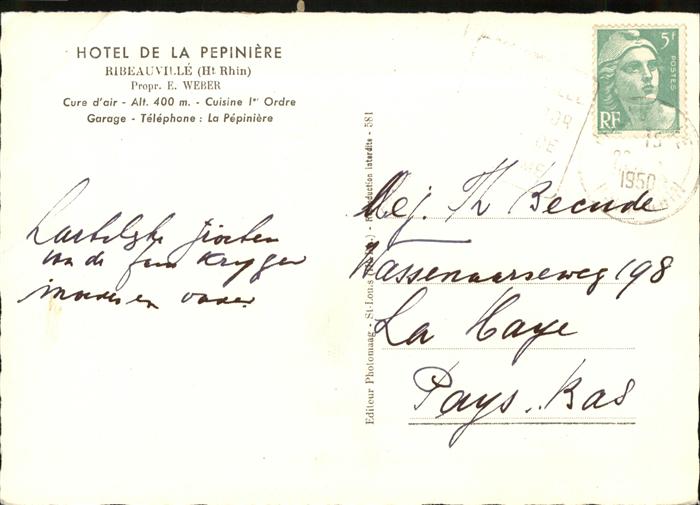 HOTEL DE LA PEPINIÈRE
RIBEAUVILLÉ (Ht Rhin)
Propr. E. WEBER
Cure d'air - Alt. 400 m. - Cuisine Ier Ordre
Garage - Téléphone : La Pépinière
Hartelijke groeten
van de fam Kruyger
moeder en vader
Editeur Photomaag - St-Louis - Reproduction interdite - 581
5f
POSTES
RF
15
1950
Mej. Th Becude
Wassenaarseweg 198
La Haye
Pays-Bas